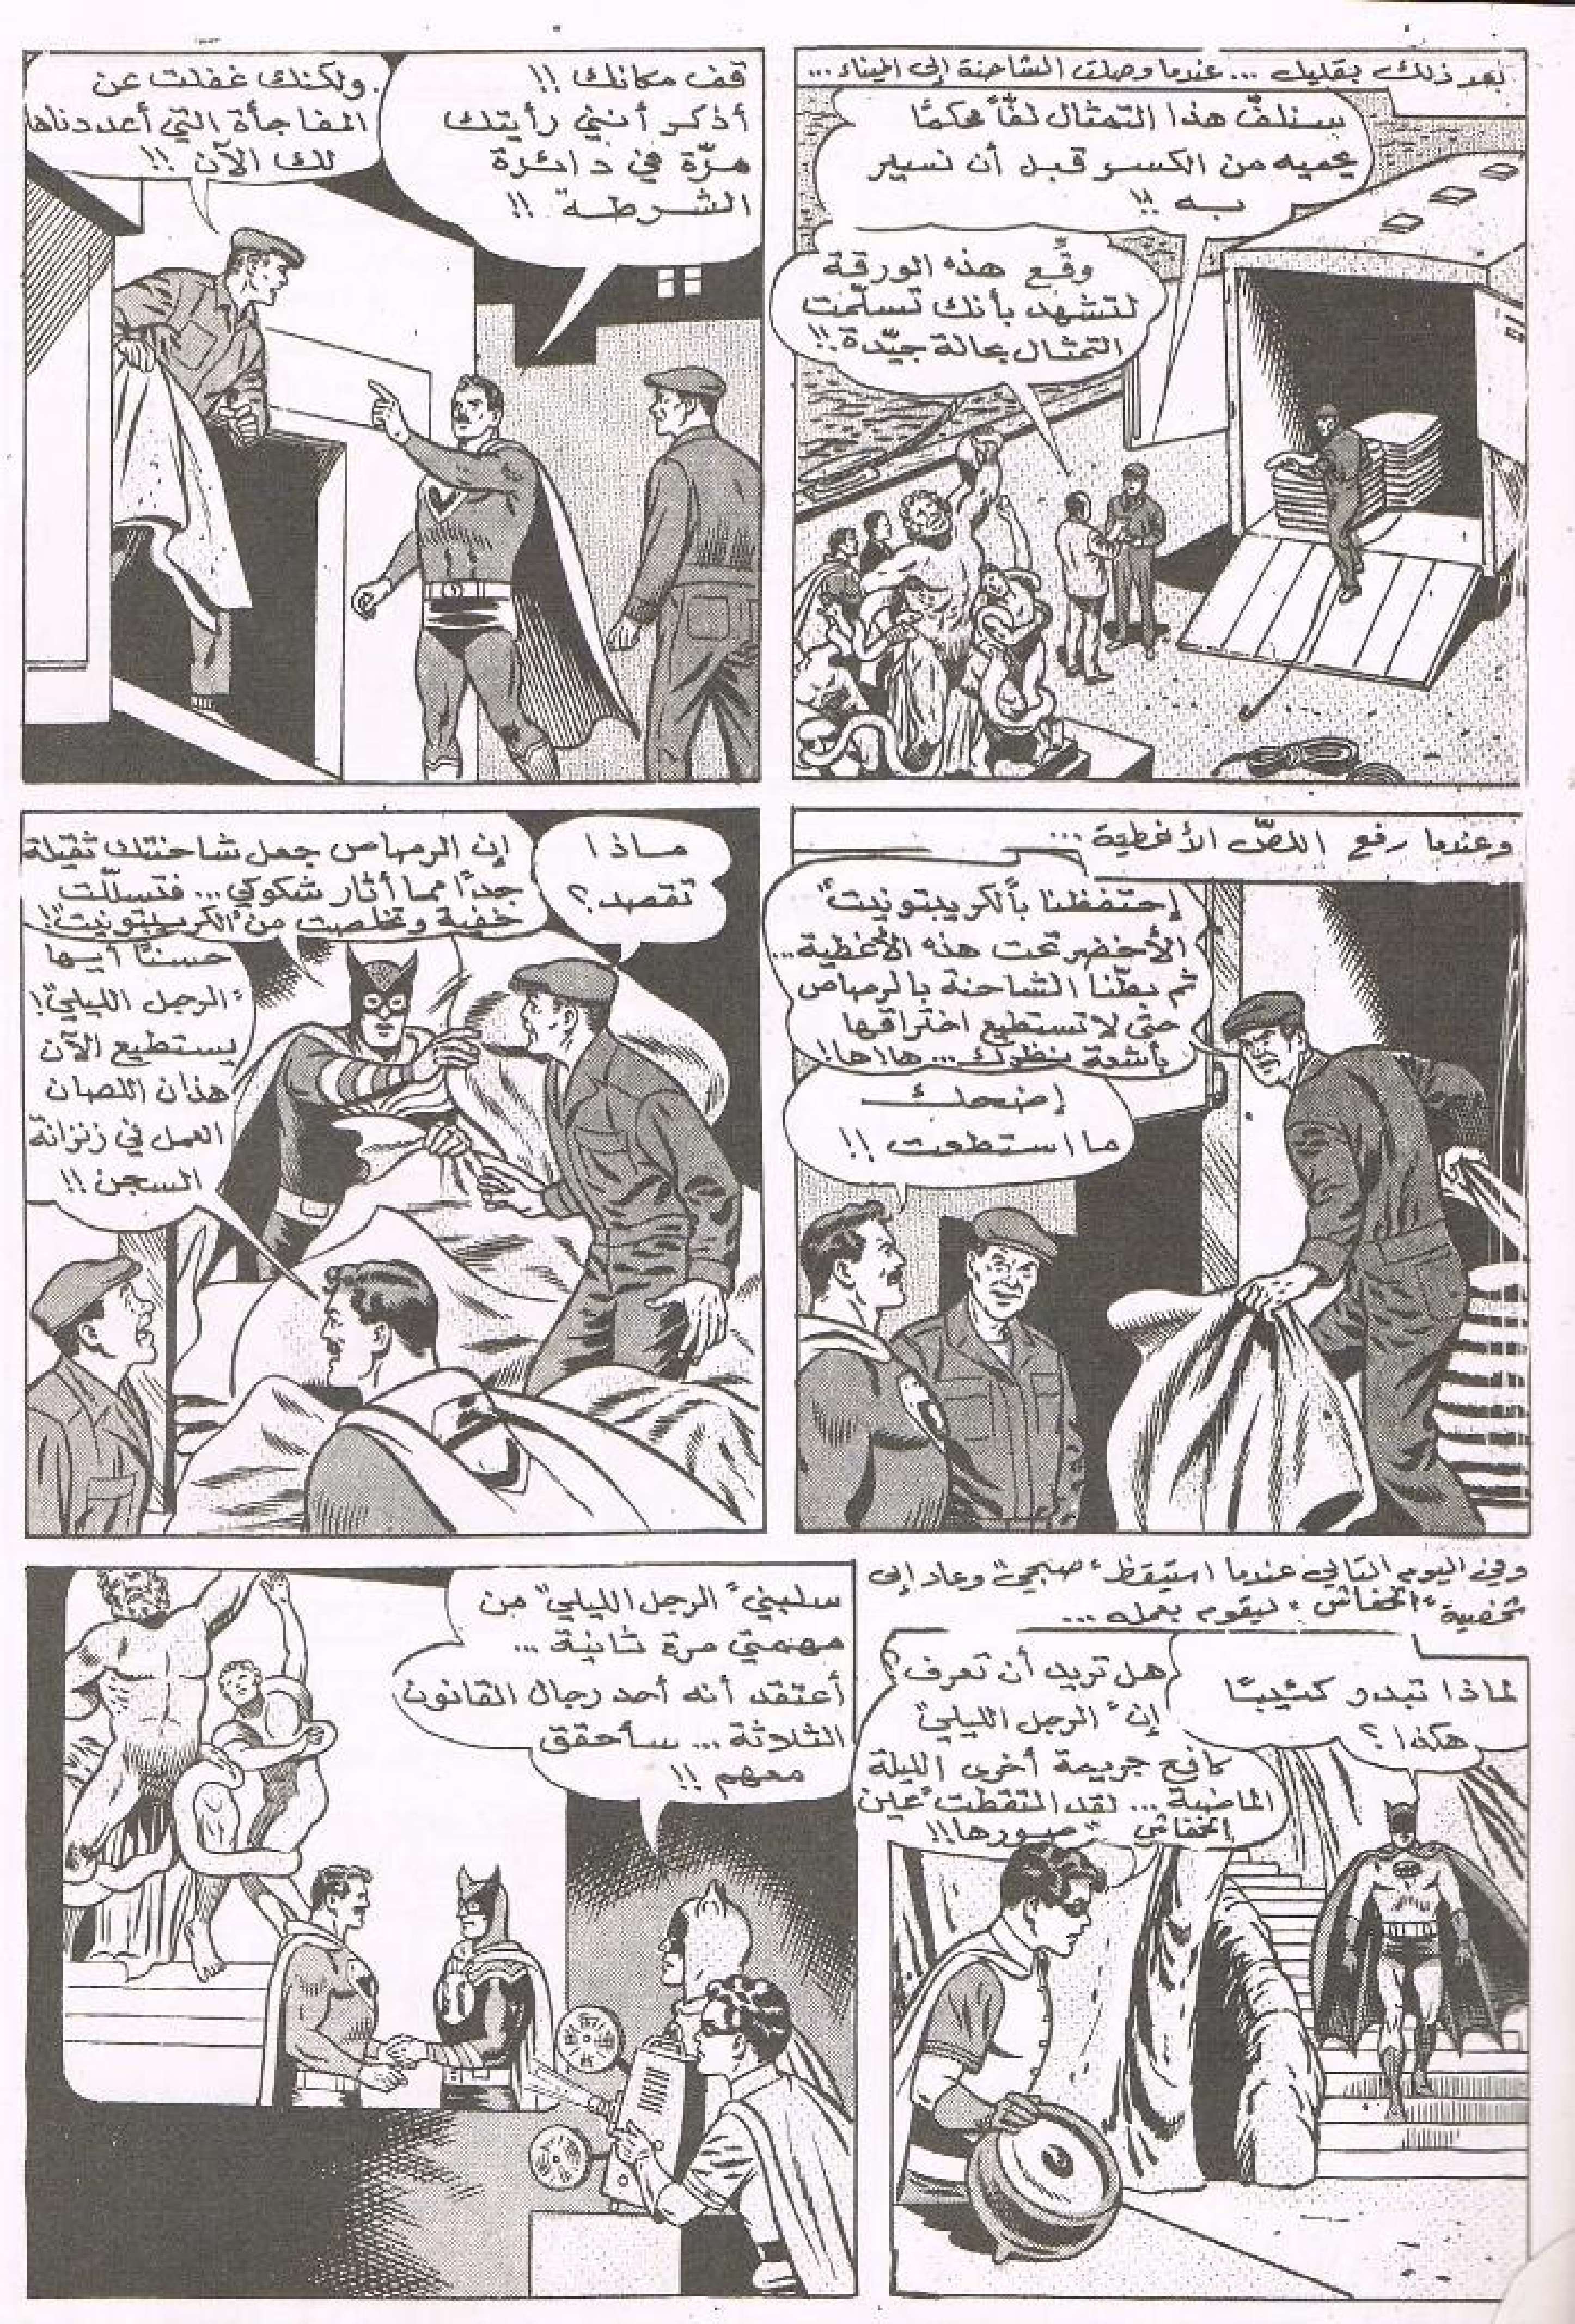 بعد ذلك بقليل ... عندما وصلت الشاحنة إلى الميناء ...
سنلفّ هذا التمثال لفّاً محكمًا
يحميه من الكسر قبل أن نسير
به !!
وقِّع هذه الورقة
لتشهد بأنك تسلّمت
التمثال بحالة جيّدة !!
قف مكانك !!
أذكر أنني رأيتك
مرّة في دائرة
الشرطة !!
ولكنك غفلت عن
المفاجأة التي أعددناها
لك الآن !!
وعندما رفع اللصّ الأغطية ...
إحتفظنا بـ"ألكريبتونيت"
الأخضر تحت هذه الأغطية ...
ثم بطّنا الشاحنة بالرصاص
حتى لا تستطيع اختراقها
بأشعة نظرك ... ها ها !
إضحك
ما استطعت !!
ماذا
تقصد ؟
إن الرصاص جعل شاحنتك ثقيلة
جدًا مما أثار شكوكي ... فتسلّلت
خفية وتخلصت من "الكريبتونيت" !
حسنًا أيها
"الرجل الليلي" !
يستطيع الآن
هذان اللصان
العمل في زنزانة
السجن !!
وفي اليوم التالي عندما استيقظ "صبحي" وعاد إلى
شخصية "الخفاش" ليقوم بعمله ...
لماذا تبدو كئيبًا
هكذا ؟
هل تريد أن تعرف ؟
إن "الرجل الليلي"
كافح جريمة أخرى الليلة
الماضية ... لقد التقطت "عين
الخفاش" صورها !!
سلبني "الرجل الليلي" من
مهمتي مرة ثانية ...
أعتقد أنه أحد رجال القانون
الثلاثة ... سأحقق
معهم !!